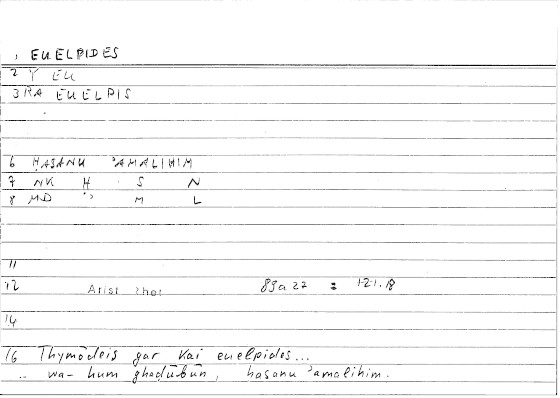 , EUELPIDES
2 Y EU
3 RA EUELPIS
6 ḤASANU ʾAMALIHIM
7 NK Ḥ S N
8 MD ʾ M L
11
12 Arist Rhet 89a27 = 121.18
14
16 Thymōdeis gar kai euelpides...
.. wa- hum ghaḍūbūn, hasanu ʾamalihim.